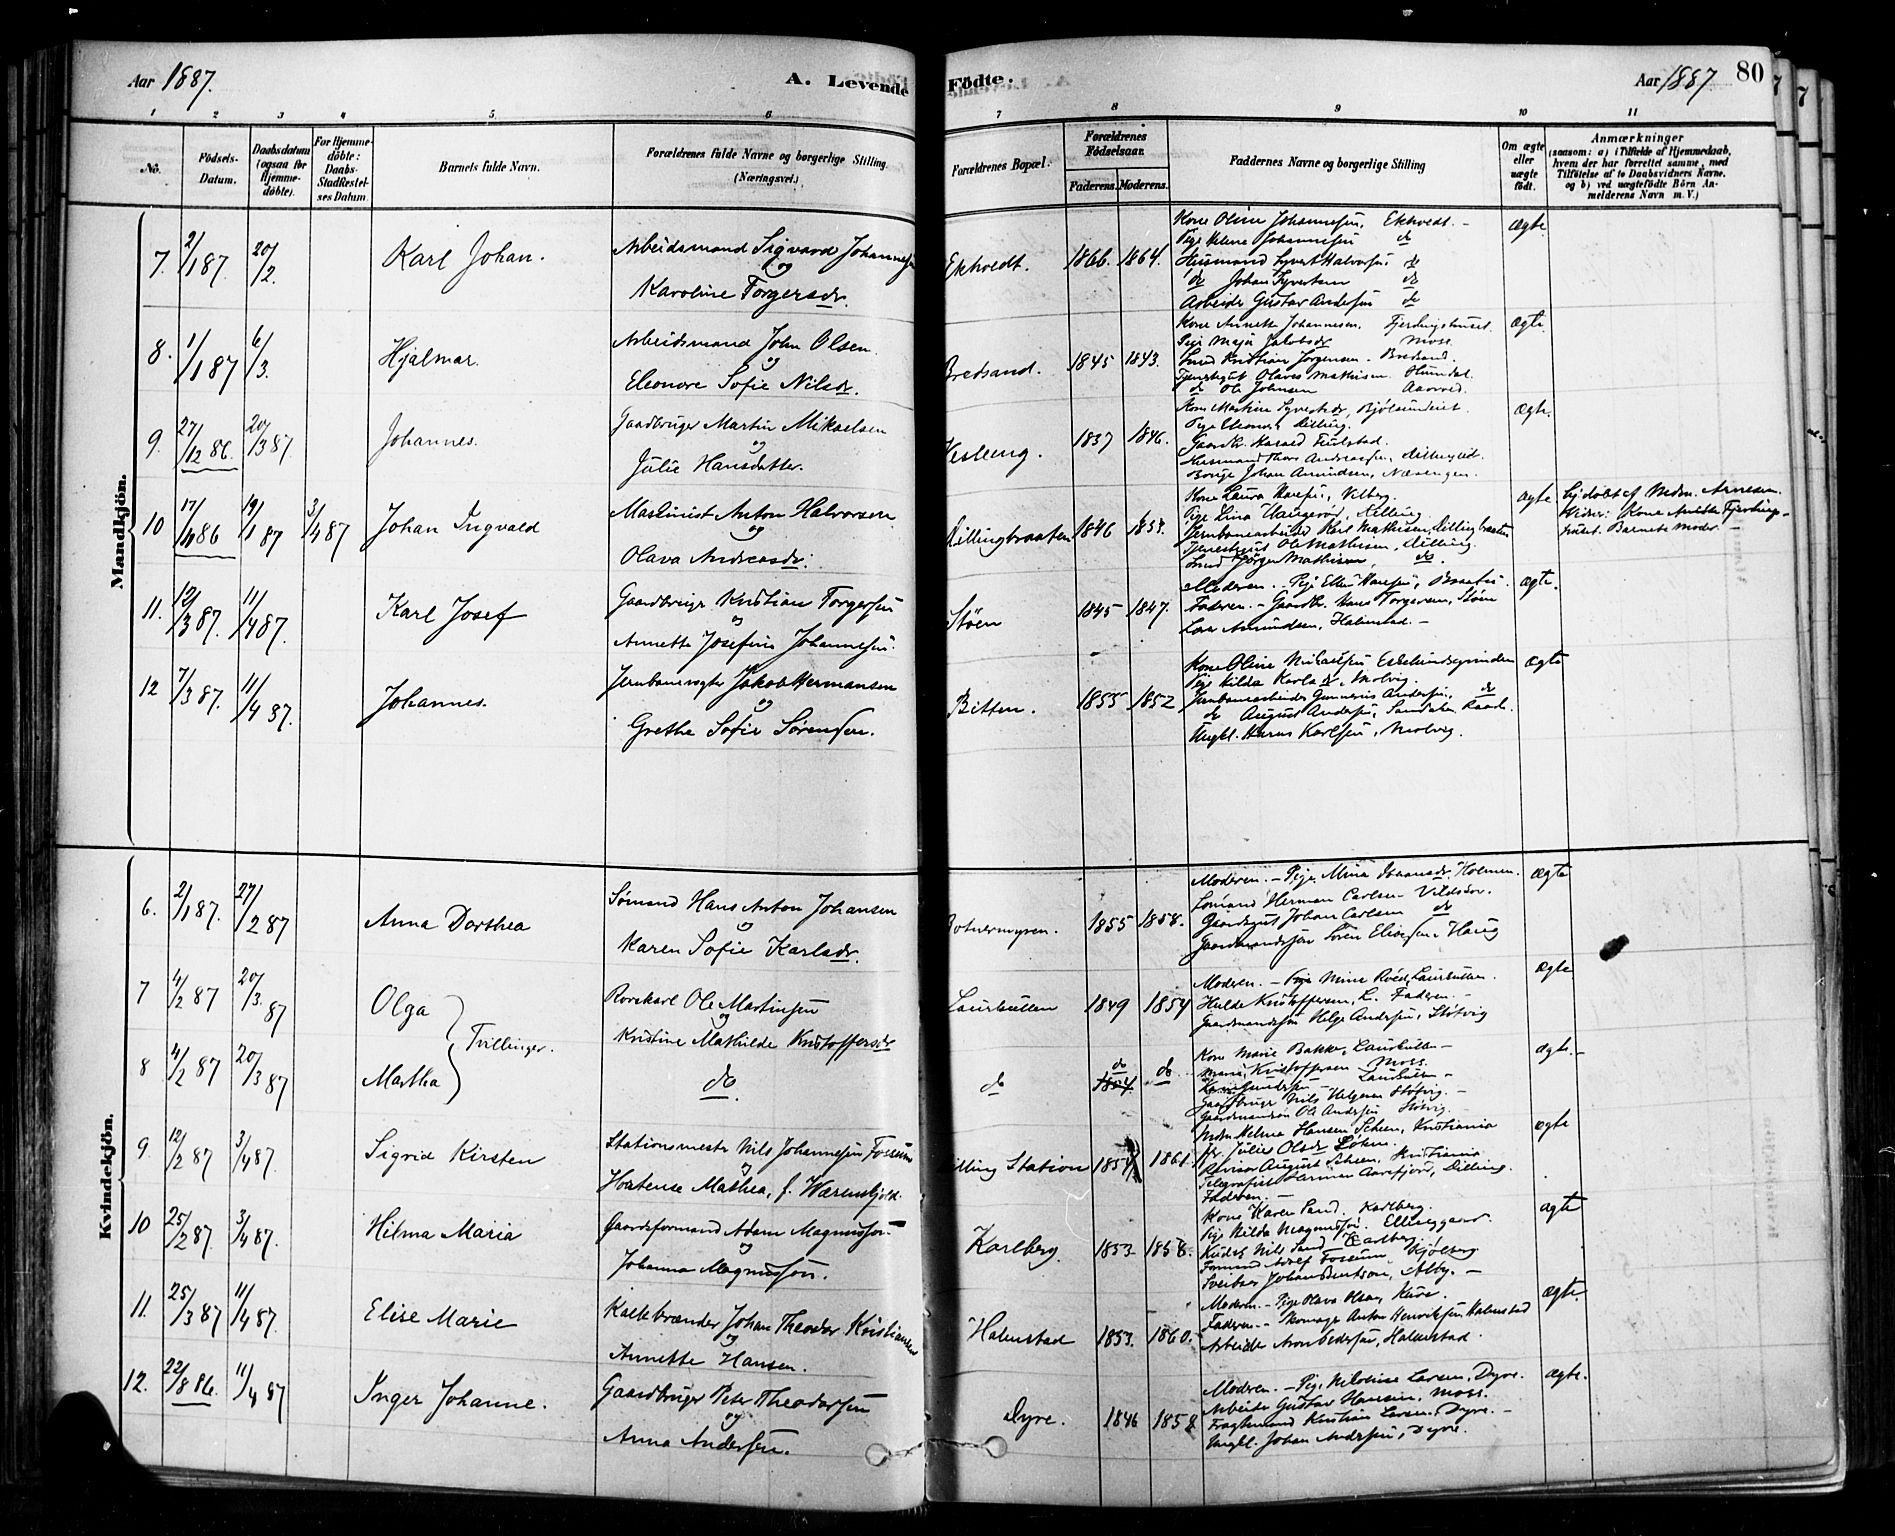 Aar 1887. A. Levende Fødte. Aar 1887 80
1 2 3 4 5 6 7 8 9 10 11
No.
Fødsels-Datum.
Daabsdatum (ogsaa for Hjemmedøbte).
For Hjemmedøbte: Daabs-Stadfæstelses Datum.
Barnets fulde Navn.
Forældrenes fulde Navne og borgerlige Stilling. (Næringsvei.)
Forældrenes Bopæl.
Forældrenes Fødselsaar.
Faderens. Moderens.
Faddernes Navne og borgerlige Stilling
Om ægte eller uægte født.
Anmærkninger
(saasom: a) i Tilfælde af Hjemmedaab,
hvem der har forrettet samme, med
Tilføielse af to Daabsvidners Navne.
og b) ved uægtefødte Børn An-
melderens Navn m. V.)
Mandkjön.
7. 2/1 87. 20/2. Karl Johan. Arbeidsmand Sigvard Johannesen
og
Karoline Torgersdr.
Ekhvedt. 1866. 1864. ægte.
Kone Oline Johannesen, Ekhvedt. -
Pige Helene Johannesen do
Husmand Syvert Halvorsen do
do Johan Syvertsen do
Arbeider Gustav Andersen do
8. 1/1 87 6/3. Hjalmar. Arbeidsmand John Olsen
og
Eleonore Sofie Nilsdr.
Bredsand. 1845 1843. ægte.
Kone Annette Johannesen. Fjerdingshuset.
Pige Maja Jakobsdr Moss.
Smed Kristian Jørgensen. Bredsand.
Tjenestegut Olaves Mathisen.
do Ole Johnsen
9. 27/12 86. 20/3 87. Johannes. Gaardbruger Martin Mikaelsen
og
Julie Hansdatter.
1837 1846. ægte.
Husmand Thore Andreassen,
Johan Amundsen, Næsengen.
10 17/ 86 19/1 87 3/4 87 Johan Ingvald Maskinist Anton Halvorsen
og
Olava Andreasdr.
Dillingbraaten 1846 1853. ægte
Kone Laura Hansen, Vilberg.
Pige Lina Haugerød, Dilling.
Jernbanearbeider Karl Mathisen, Dillingbraaten
Tjenestegut Ole Mathisen, Dilling.
Smed Jørgen Mathisen, do.
Hj.døbt af Mdm. Arnesen.
Vidner: Kone Anette Fjerdings-
huset. Barnets Moder -
11. 12/3 87. 11/4 87. Karl Josef Gaardbruger Kristian Torgersen
og
Annette Josefine Johannesen.
Støen 1845 1847. ægte.
Moderen. - Pige Ellen Hansen, Braaten.
Faderen. - Gaardbr. Hans Torgersen, Støen
Lars Amundsen, Halmstad. -
12 7/3 87. 11/4 87. Johannes. Jernbanevogter Jakob Hermansen
og
Grethe Sofie Sørensen.
Bitten. 1855 1852 ægte
Kone Oline Mikaelsen
Pige Hilda Karlsdr, Molvig.
Jernbanearbeider Gunnerius Andersen, do
do August Andersen,
Ungkl. Karlsen, Molvig.
Kvindekjön.
6. 2/1 87. 27/2 87 Anna Dorthea Sømand Hans Anton Johansen
og
Karen Sofie Karlsdr.
Botnermyren. 1855 1858. ægte
Moderen. - Pige Mina Johansdr, Holmen.
Sømand Herman Carlsen -
Gaardsgut Johan Carlsen do
Gaardmandssøn Søren Eliassen, Haug
7 4/2 87 20/3. 87 Olga Tvillinger. Rorskarl Ole Martinsen
og
Kristine Mathilde Kristoffersdr
Laurkullen 1849 1854 ægte
Moderen. - Pige Mina Røed, Laurkullen.
Hulda Kristoffersen, L. Faderen. -
Gaardmandssøn Helge Andersen, Støtvig
8 4/2 87 20/3 87 Martha do. do do 1854 do ægte. -
Kone Marie Bakke, Laurkullen -
Maria Kristoffersen Moss.
Gaardbruger Nils Helgesen Støtvig. -
Gaardmandssøn Ole Andersen Støtvig. -
9 12/2 87 3/4 87. Sigrid Kirsten Stationsmester Nils Johannesen Fossum
og
Hortense Mathea, f. Wærenskjold.
Dilling Station 1854 1861. ægte
Mdm Helma Hansen Scheen, Kristiania
fr. Julie Olsdr Løken.
Revisor August Scheen, Kristiania
Telegrafist Herman Aarefjord, Dilling.
Faderen. -
10 25/2 87. 3/4 87. Hilma Maria Gaardsformand Adam Magnusson.
og
Johanna Magnusson.
Karlberg. 1853. 1858. ægte
Kone Karen Sand, Karlberg.
Pige Hilda Magnusson. Ellinggaard.
Kudsk Nils Sand Carlberg.
Formand Adolf Fossum Kjølberg
Sveitser Johan Bentson, Alby. -
11. 25/3 87 11/4 87. Elise Marie Kalkbrænder Johan Theodor Kristiansen
og
Annette Hansen.
Halmstad 1853. 1860. ægte.
Moderen. - Pige Olava Olsen, Kure.
Faderen. - Skomager Anton Henriksen Halmstad
Arbeider Aron Pedersen, Halmstad.
12. 22/8 86. 11/4 87 Inger Johanne. Gaardbruger Peter Theodorsen
og
Anna Andersen.
Dyre. 1846 1858 ægte.
Moderen. - Pige Nilovine Larsen, Dyre.
Arbeider Gustav Hansen, Moss.
Fragtemand Kristian Larsen, Dyre. -
Ungkl. Johan Andersen, Dyre.